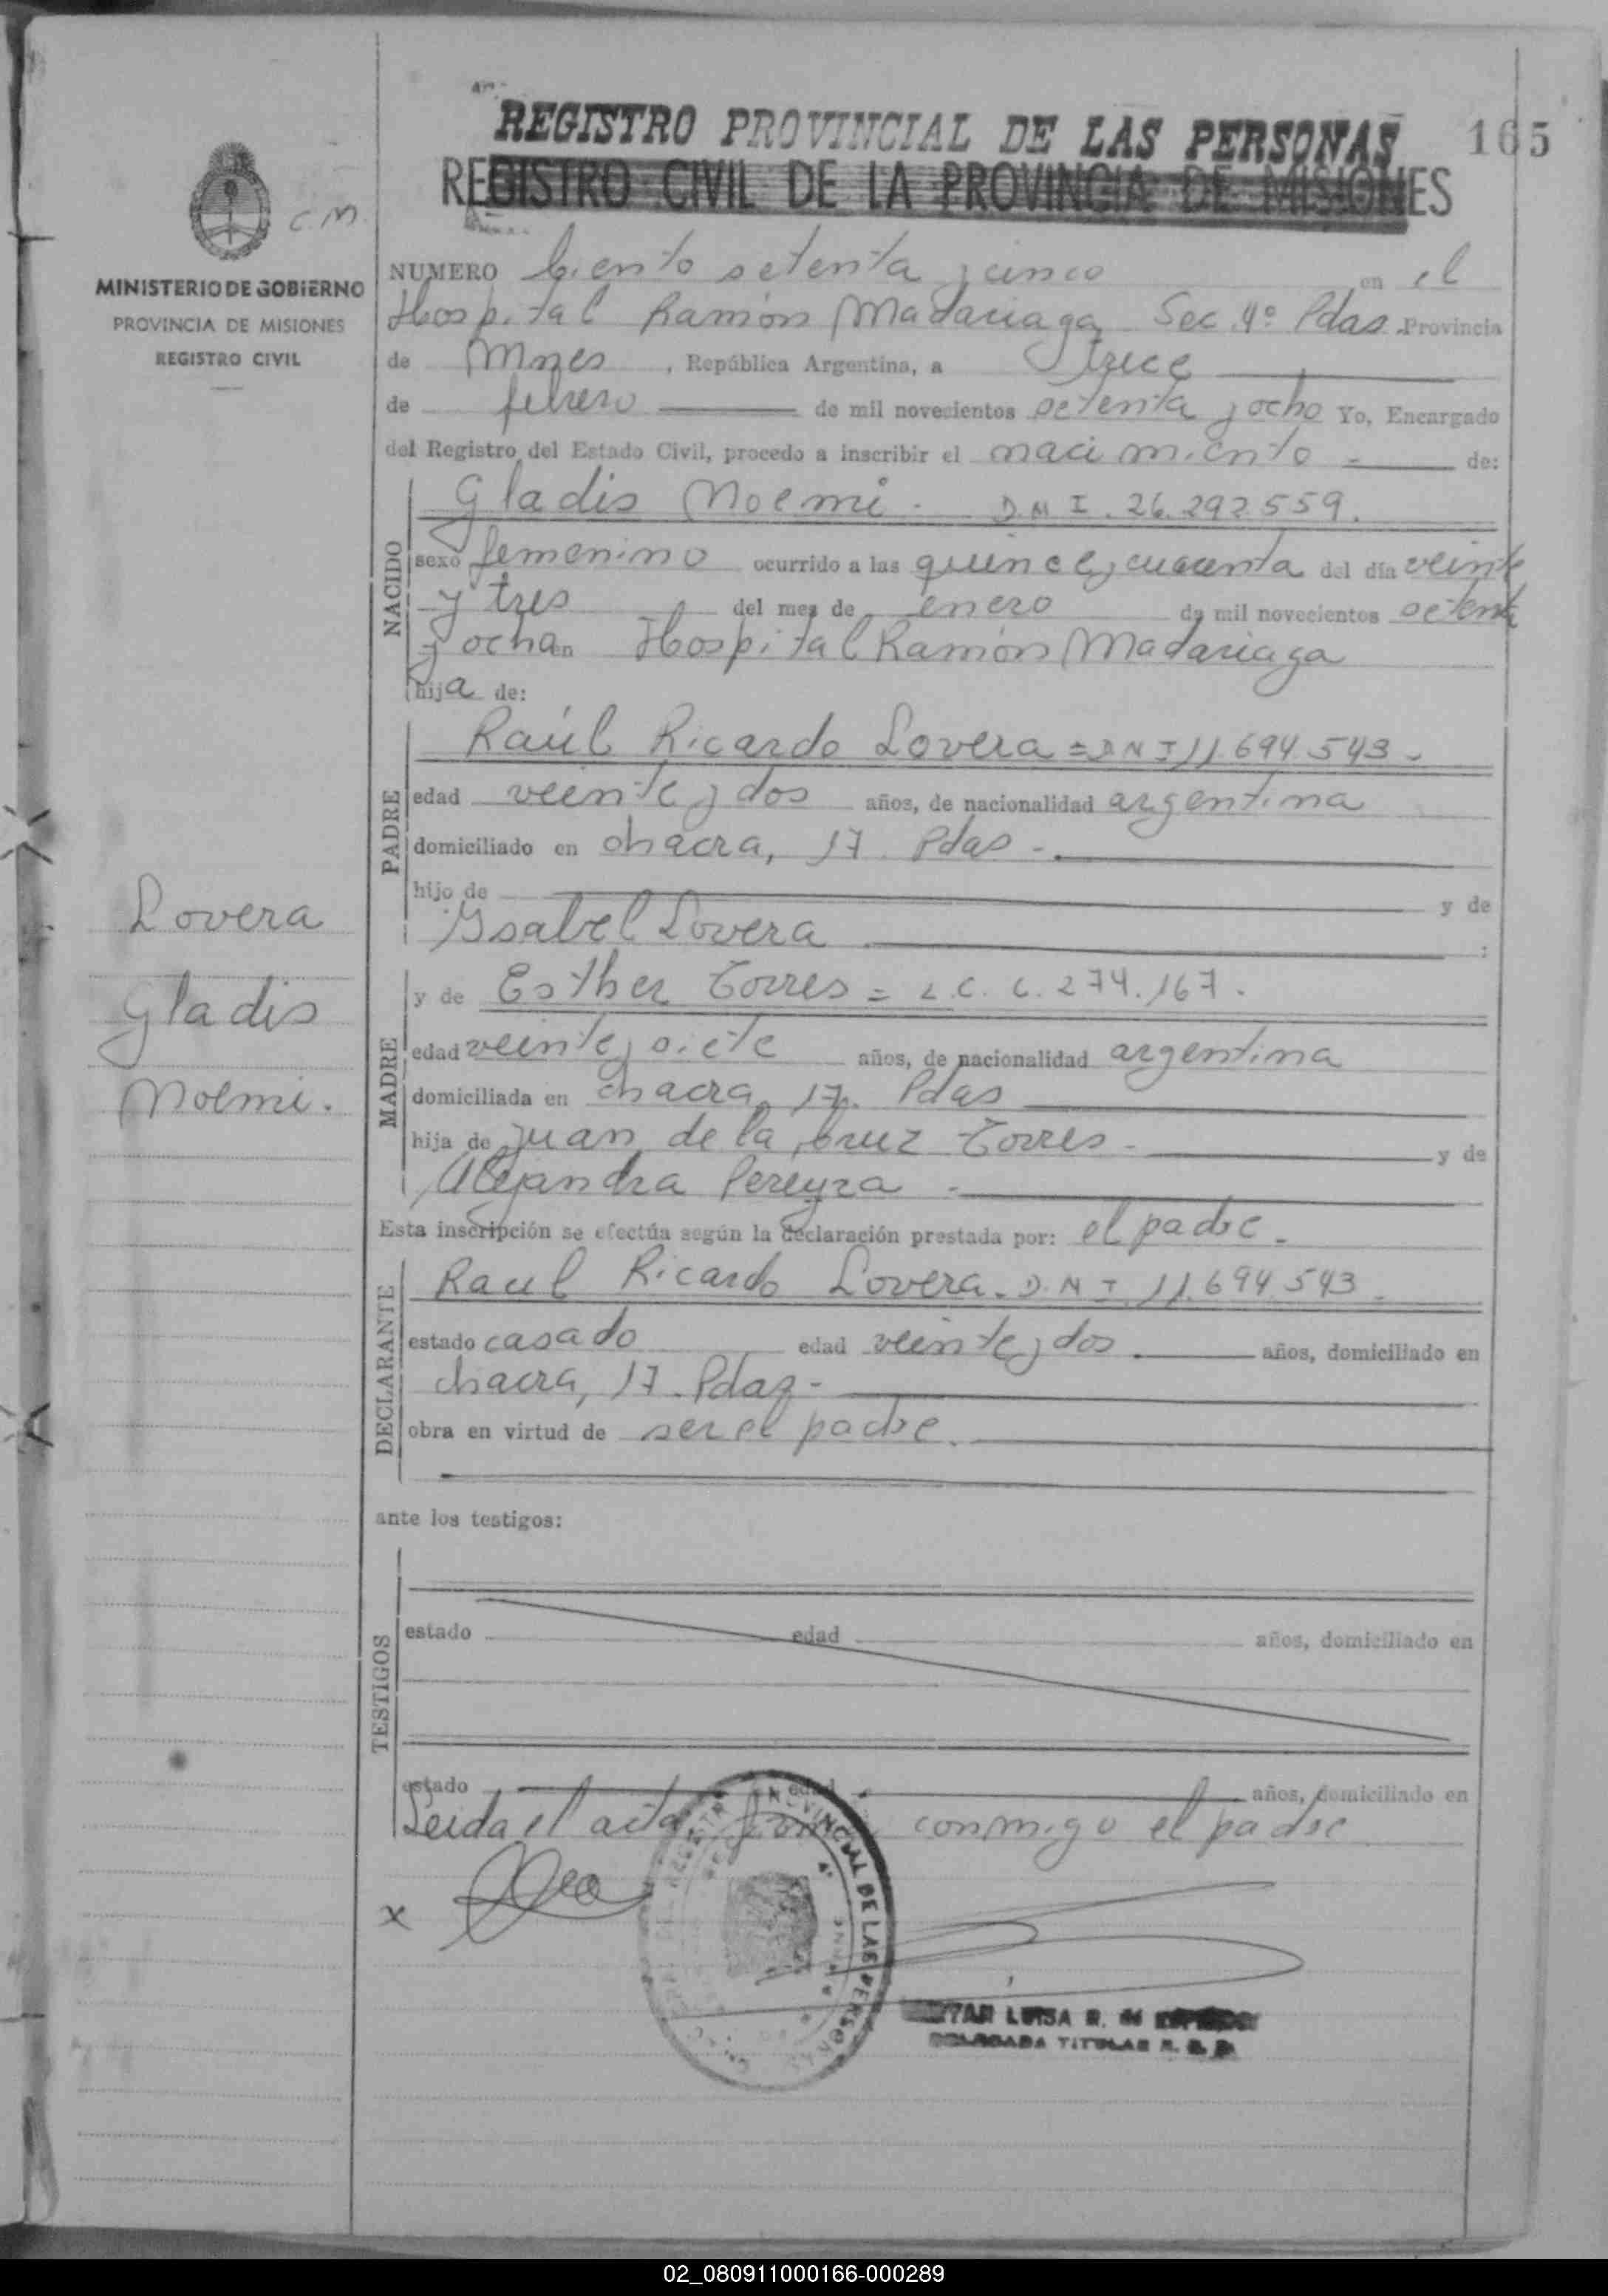 REGISTRO PROVINCIAL DE LAS PERSONAS
165
REGISTRO CIVIL DE LA PROVINCIA DE MISIONES
C.M.
MINISTERIO DE GOBIERNO
PROVINCIA DE MISIONES
REGISTRO CIVIL
Lovera
Gladis
Noemi.
NUMERO Ciento setenta y cinco en el
Hospital Ramón Madariaga, Sec. 4º Pdas. Provincia
de Mnes, República Argentina, a trece
de febrero de mil novecientos setenta y ocho Yo, Encargado
del Registro del Estado Civil, procedo a inscribir el nacimiento de:
NACIDO
Gladis Noemi. D.N.I. 26.292.559.
sexo femenino ocurrido a las quince y cuarenta del día veinte
y tres del mes de enero de mil novecientos setenta
y ocho en Hospital Ramón Madariaga
hija de:
PADRE
Raúl Ricardo Lovera = DNI 11.694.543.-
edad veinte y dos años, de nacionalidad argentina
domiciliado en chacra, 17. Pdas -.
hijo de y de
Ysabel Lovera :
MADRE
y de Esther Torres = L.C. 6.274.167.
edad veinte y siete años, de nacionalidad argentina
domiciliada en chacra, 17. Pdas
hija de Juan de la Cruz Torres - y de
Alejandra Pereyra -
Esta inscripción se efectúa según la declaración prestada por: el padre.
DECLARANTE
Raul Ricardo Lovera. D.N.I. 11.694.543.
estado casado edad veinte y dos años, domiciliado en
chacra, 17. Pdas-
obra en virtud de ser el padre.
ante los testigos:
TESTIGOS
estado edad años, domiciliado en
estado edad años, domiciliado en
Leida el acta, firma conmigo el padre
x
PROVINCIAL DE LAS PERSONAS
LUISA R. de
DELEGADA TITULAR R. P.
02_080911000166-000289